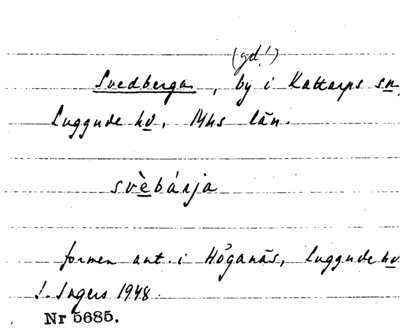 (gd!)
Svedberga, by i Kattarps sn,
Luggude hd, Mhs län.
svèbárja
formen ant. i Höganäs, Luggude hd
I. Ingers 1948.
Nr 5685.